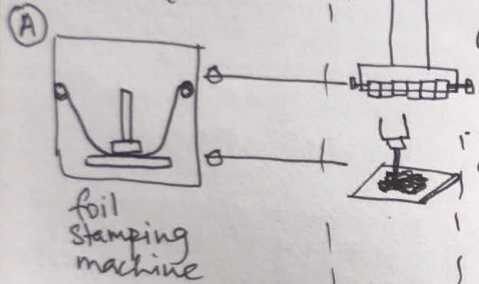 A
foil
stamping
machine